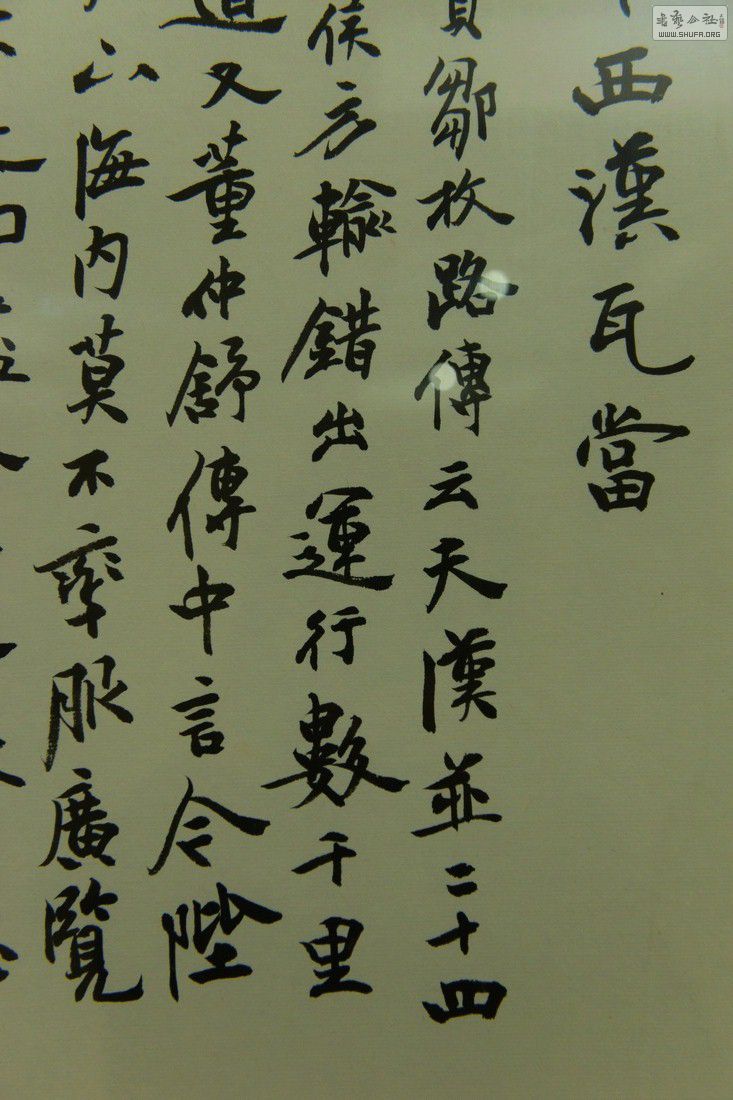 西漢瓦當
鄒枚路傳云天漢並二十四
侯方輸錯出運行數千里
道又董仲舒傳中言今陛
海内莫不率服廣覽
書藝公社
WWW.SHUFA.ORG